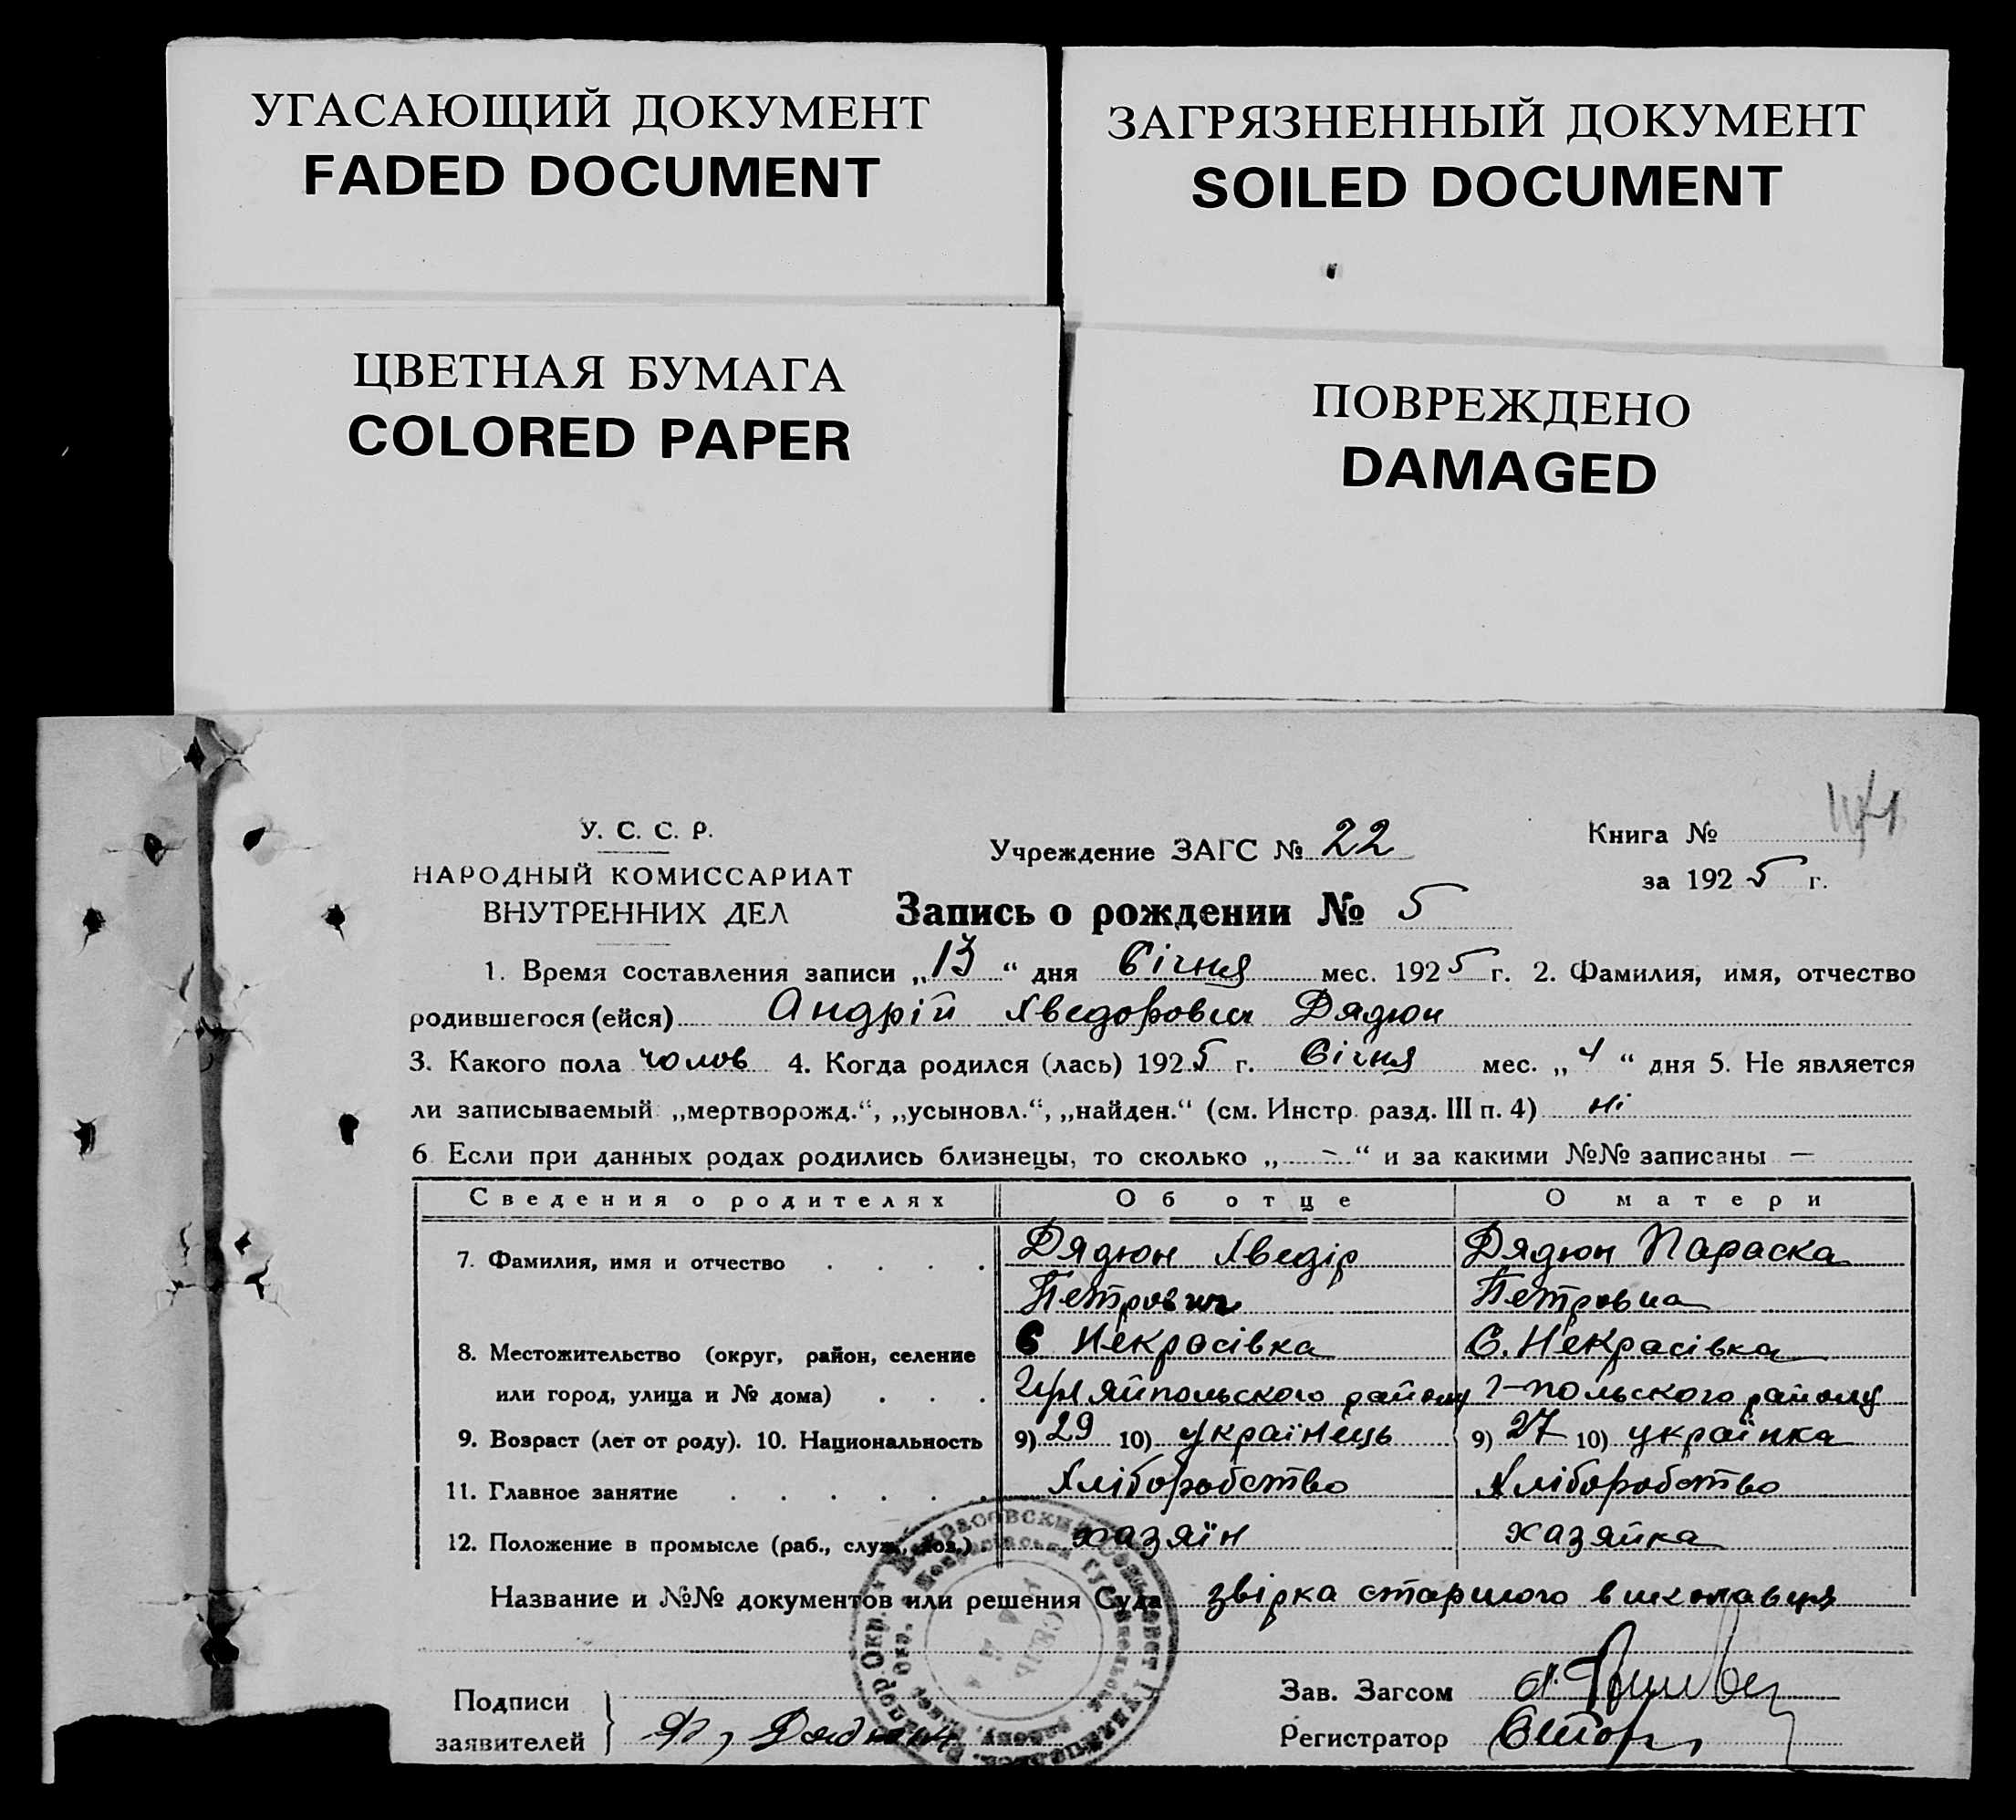 УГАСАЮЩИЙ ДОКУМЕНТ
FADED DOCUMENT
ЗАГРЯЗНЕННЫЙ ДОКУМЕНТ
SOILED DOCUMENT
ЦВЕТНАЯ БУМАГА
COLORED PAPER
ПОВРЕЖДЕНО
DAMAGED
У. С. С. Р.
НАРОДНЫЙ КОМИССАРИАТ
ВНУТРЕННИХ ДЕЛ
Учреждение ЗАГС № 22
Книга №
за 1925 г.
Запись о рождении № 5
1. Время составления записи „13“ дня Січня мес. 1925 г. 2. Фамилия, имя, отчество
родившегося (ейся) Андрій Хведорович Дядюн
3. Какого пола чолов 4. Когда родился (лась) 1925 г. Січня мес. „4“ дня 5. Не является
ли записываемый „мертворожд.“, „усыновл.“, „найден.“ (см. Инстр. разд. III п. 4) ні
6. Если при данных родах родились близнецы, то сколько „-“ и за какими №№ записаны —
Сведения о родителях Об отце О матери
7. Фамилия, имя и отчество . . . . Дядюн Хведір Дядюн Параска
Петрович Петровна
8. Местожительство (округ, район, селение С Некрасівка С. Некрасівка
или город, улица и № дома) . . . Гуляйпольского району Г-польского району
9. Возраст (лет от роду). 10. Национальность 9) 29 10) Українець 9) 27 10) українка
11. Главное занятие . . . . . . Хліборобство Хліборобство
12. Положение в промысле (раб., служ., хоз.) . хазяїн хазяйка
Название и №№ документов или решения Суда звірка старшого
Подписи
заявителей Дядюн
Зав. Загсом
Регистратор